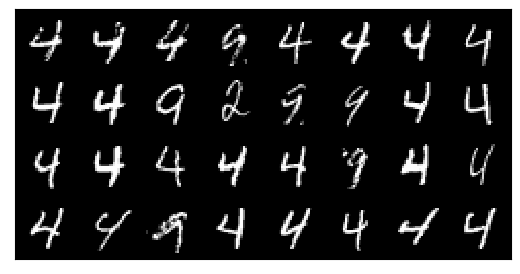 4 4 4 9 4 4 4 4
4 4 9 2 9 9 4 4
4 4 4 4 4 9 4 4
4 4 9 4 4 4 4 4